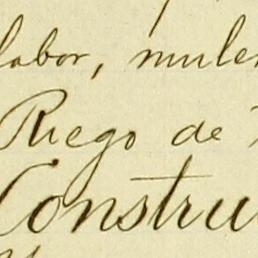 labor, mulen
Riego de
Constru